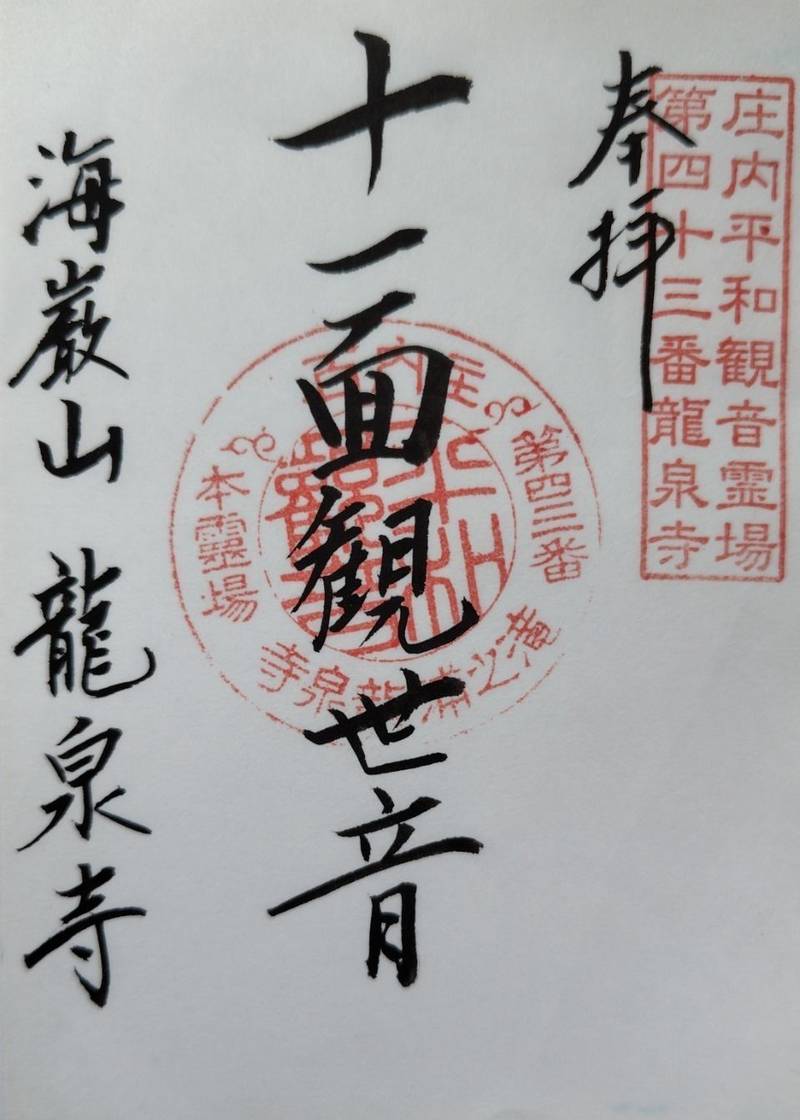 庄内平和観音霊場
第四十三番龍泉寺
奉拝
十一面観世音
第四三番
本靈場
海巌山 龍泉寺